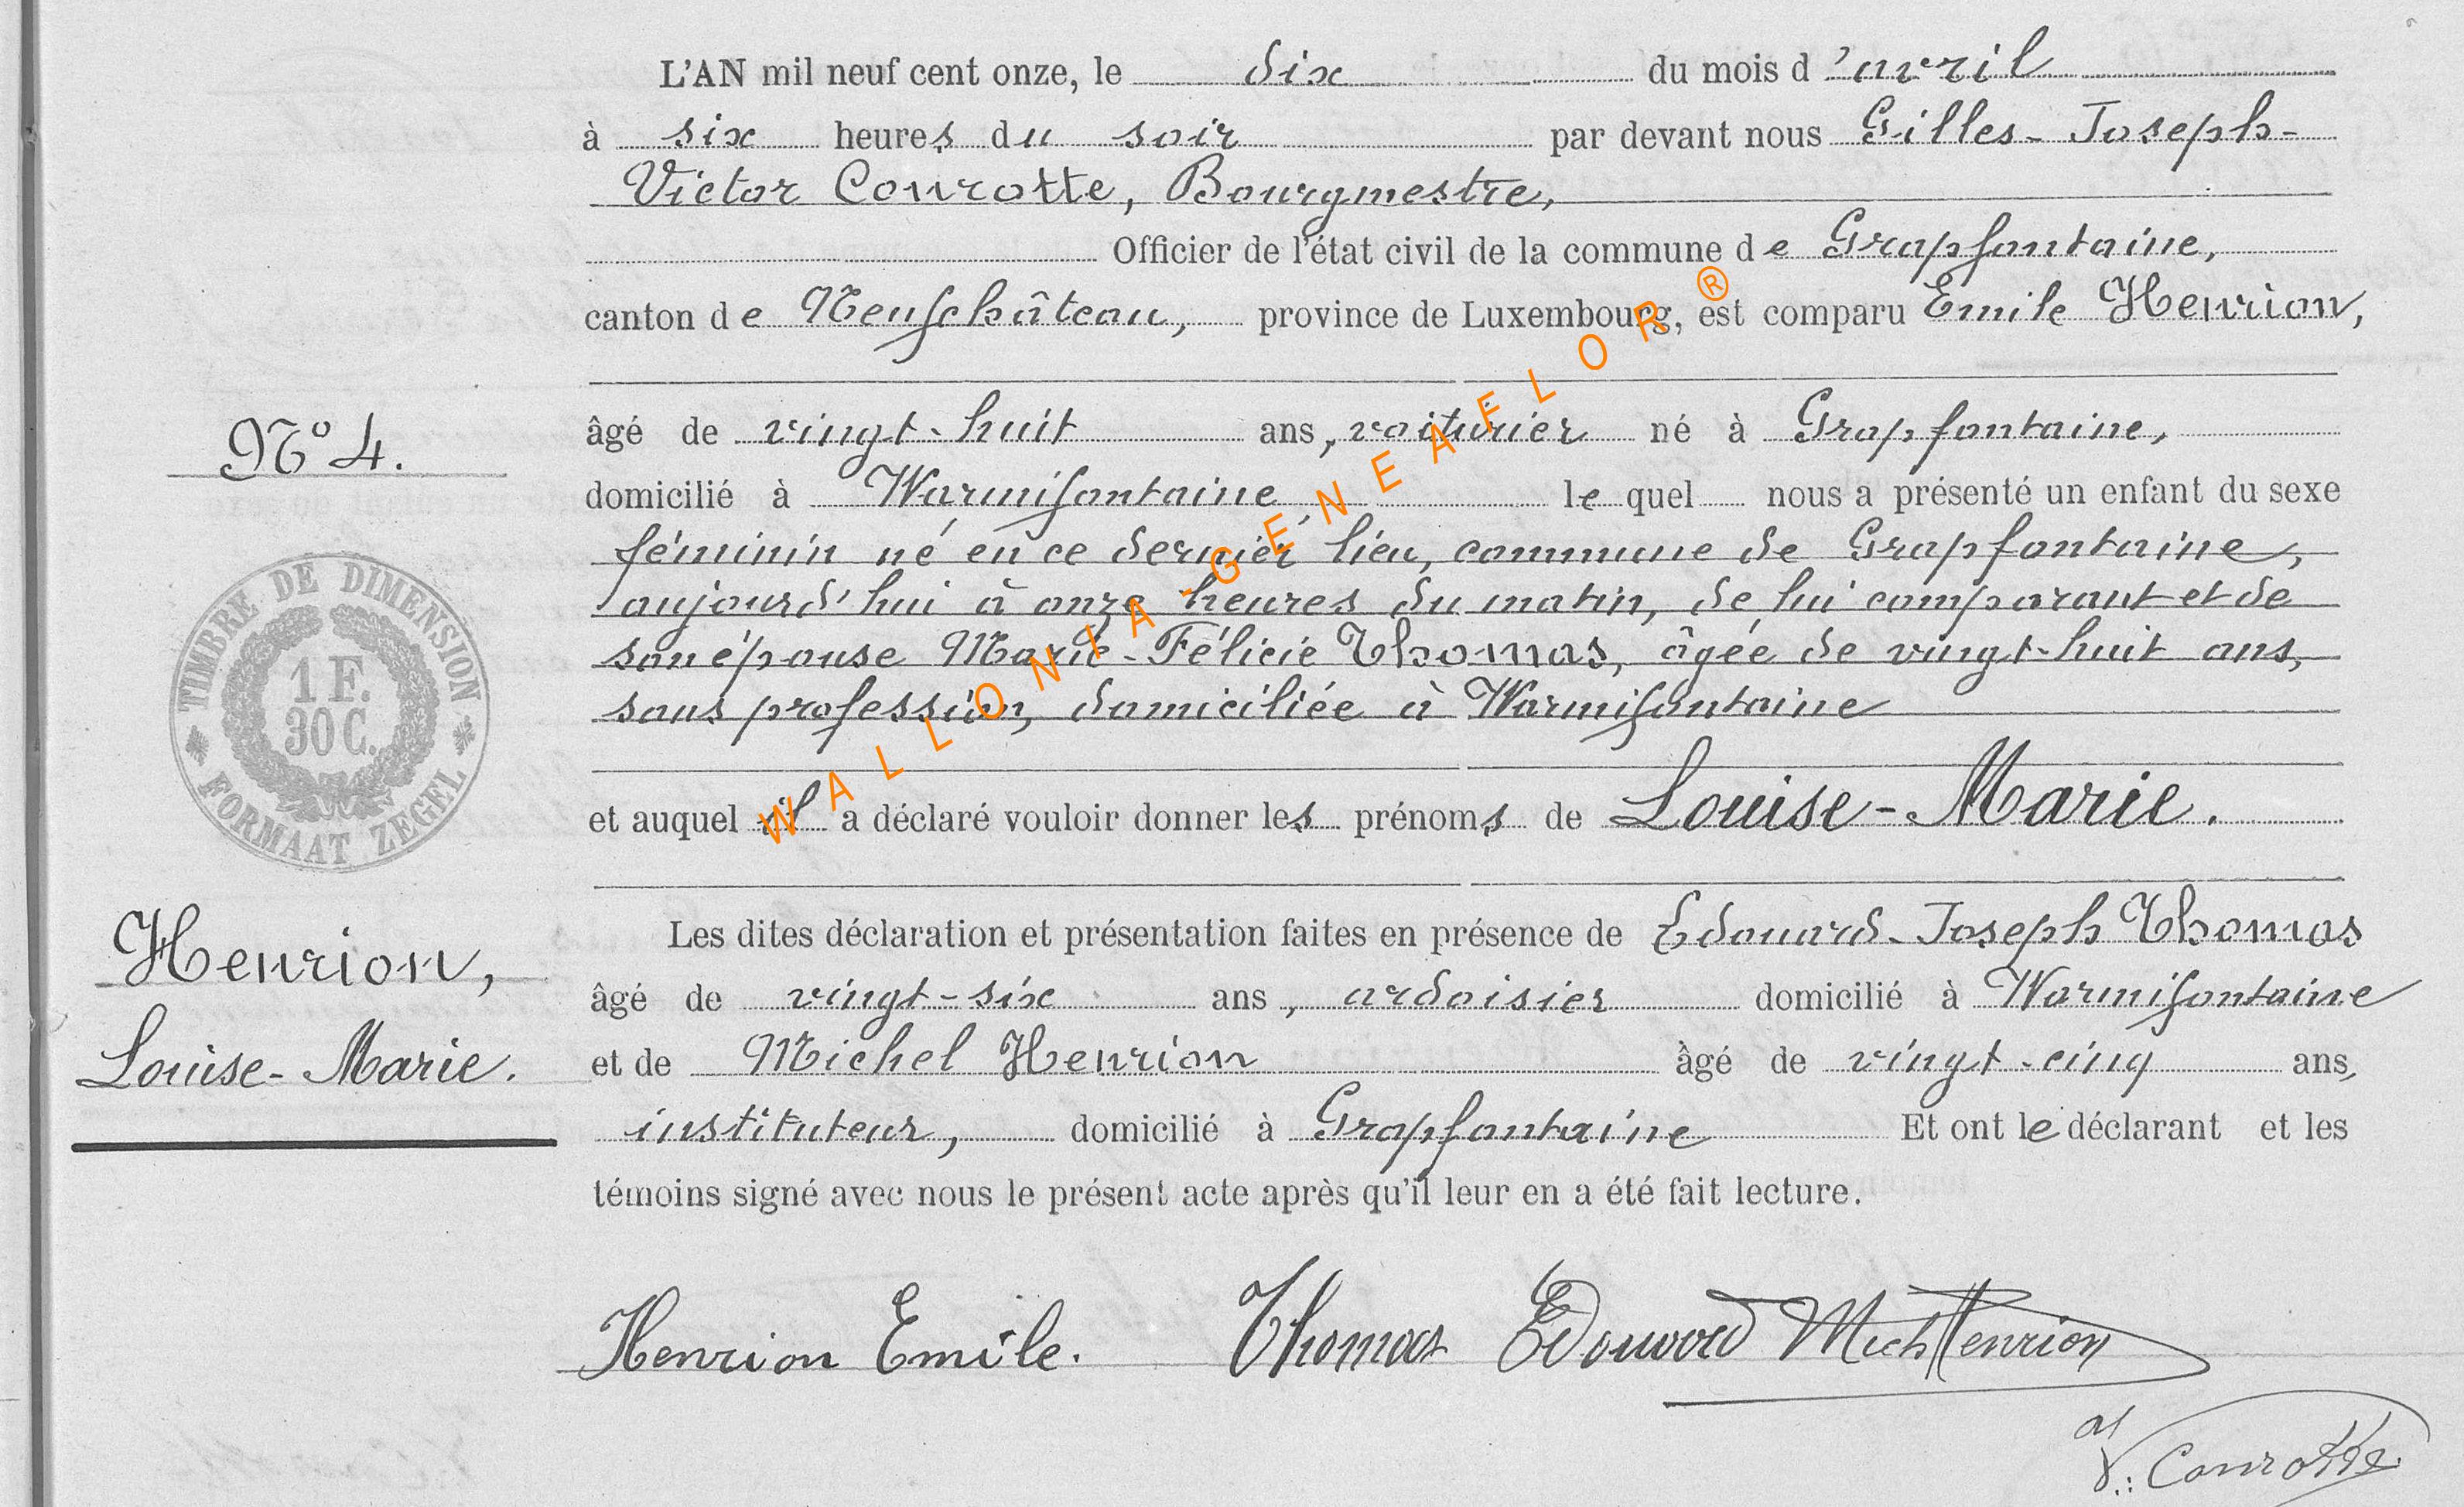 L'AN mil neuf cent onze, le dix du mois d'avril
à six heures du soir par devant nous Gilles-Joseph-
Victor Conrotte, Bourgmestre,
Officier de l'état civil de la commune de Grapfontaine,
canton de Neufchâteau, province de Luxembourg, est comparu Emile Henrion,
N° 4.
âgé de vingt-huit ans, voiturier né à Grapfontaine,
domicilié à Warmifontaine lequel nous a présenté un enfant du sexe
féminin né en ce dernier lieu, commune de Grapfontaine,
aujourd'hui à onze heures du matin, de lui comparant et de
son épouse Marie-Félicie Thomas, âgée de vingt-huit ans,
sans profession, domiciliée à Warmifontaine
et auquel il a déclaré vouloir donner les prénoms de Louise-Marie.
TIMBRE DE DIMENSION
1 F.
30 C.
FORMAAT ZEGEL
Henrion,
Louise-Marie.
Les dites déclaration et présentation faites en présence de Edouard-Joseph Thomas
âgé de vingt-six ans, ardoisier domicilié à Warmifontaine
et de Michel Henrion âgé de vingt-cinq ans,
instituteur, domicilié à Grapfontaine Et ont le déclarant et les
témoins signé avec nous le présent acte après qu'il leur en a été fait lecture.
Henrion Emile. Thomas Edouard Mich Henrion
V. Conrotte.
WALLONIA-GÉNÉAFLOR ®